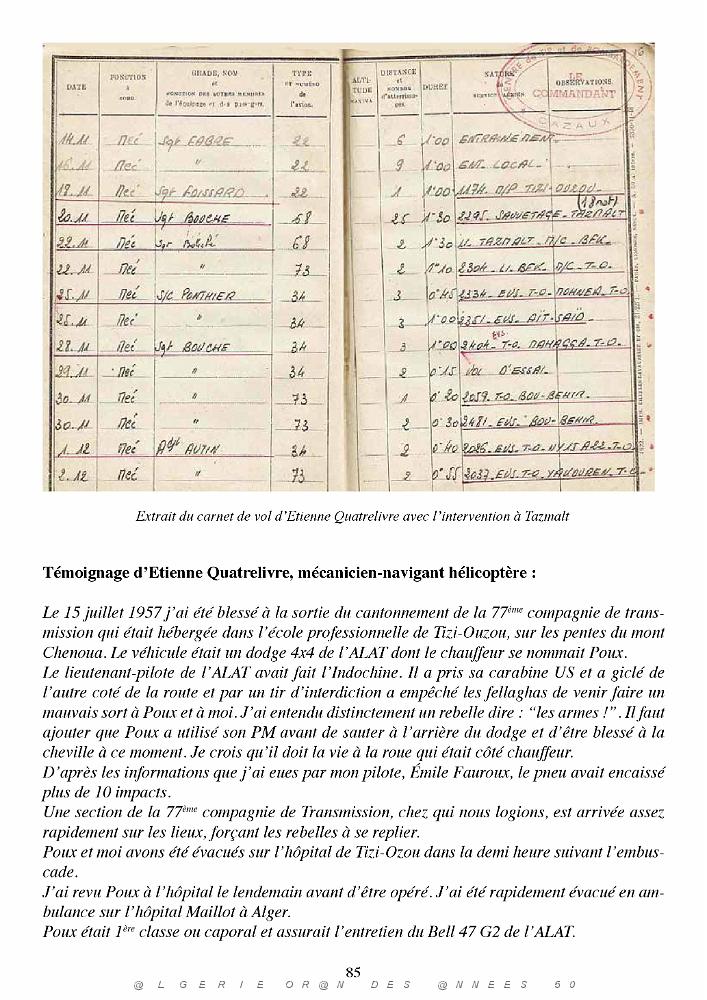 16
DATE
FONCTION à BORD.
GRADE, NOM et FONCTION DES AUTRES MEMBRES de l'équipage et des passagers.
TYPE ET NUMÉRO de l'avion.
ALTITUDE MAXIMA
DISTANCE et NOMBRE d'atterrissages.
DURÉE
NATURE du SERVICE AÉRIEN
OBSERVATIONS.
LE COMMANDANT
CAZAUX
14.11 Mec Sgt FABRE 22 6 1°00 ENTRAINEMENT.
16.11 Mec " 22 9 1°00 ENT. LOCAL.
19.11 Mec Sgt FOISSARD 22 1 1°00 1174. M/P TIZI-OUZOU
20.11 Mec Sgt BOUCHE 68 25 1°30 2295. SAUVETAGE-TAZMALT
22.11 Mec Sgt 68 2 1°30 LI. TAZMALT. M/C. BFK.
22.11 Mec " 73 2 1°10 2304. LI. BFK. M/C. T-O.
25.11 Mec S/C PONTHIER 34 3 0°45 2334. EVS. T-O. T-O.
25.11 Mec " 34 3 1°00 2351. EVS. AÏT-SAÏD
28.11 Mec Sgt BOUCHE 34 3 1°00 2404. EVS. T-O. T-O.
29.11 Mec " 34 2 0°15 VOL D'ESSAI.
30.11 Mec " 73 1 0°20 2059. T-O. BOU-BEHIR.
30.11 Mec " 73 2 0°30 2481. EVS. BOU-BEHIR.
1.12 Mec Adjt AUTIN 34 2 0°40 2026. EVS. T-O. NY15 A22. T-O
2.12 Mec " 73 2 0°55 2037. EVS. T-O. YAKOUREN. T-O
Extrait du carnet de vol d'Etienne Quatrelivre avec l'intervention à Tazmalt
Témoignage d'Etienne Quatrelivre, mécanicien-navigant hélicoptère :
Le 15 juillet 1957 j'ai été blessé à la sortie du cantonnement de la 77ème compagnie de trans-
mission qui était hébergée dans l'école professionnelle de Tizi-Ouzou, sur les pentes du mont
Chenoua. Le véhicule était un dodge 4x4 de l'ALAT dont le chauffeur se nommait Poux.
Le lieutenant-pilote de l'ALAT avait fait l'Indochine. Il a pris sa carabine US et a giclé de
l'autre coté de la route et par un tir d'interdiction a empêché les fellaghas de venir faire un
mauvais sort à Poux et à moi. J'ai entendu distinctement un rebelle dire : “les armes !”. Il faut
ajouter que Poux a utilisé son PM avant de sauter à l'arrière du dodge et d'être blessé à la
cheville à ce moment. Je crois qu'il doit la vie à la roue qui était côté chauffeur.
D'après les informations que j'ai eues par mon pilote, Émile Fauroux, le pneu avait encaissé
plus de 10 impacts.
Une section de la 77ème compagnie de Transmission, chez qui nous logions, est arrivée assez
rapidement sur les lieux, forçant les rebelles à se replier.
Poux et moi avons été évacués sur l'hôpital de Tizi-Ozou dans la demi heure suivant l'embus-
cade.
J'ai revu Poux à l'hôpital le lendemain avant d'être opéré. J'ai été rapidement évacué en am-
bulance sur l'hôpital Maillot à Alger.
Poux était 1ère classe ou caporal et assurait l'entretien du Bell 47 G2 de l'ALAT.
85
@ L G E R I E O R @ N D E S @ N N E E S 5 0